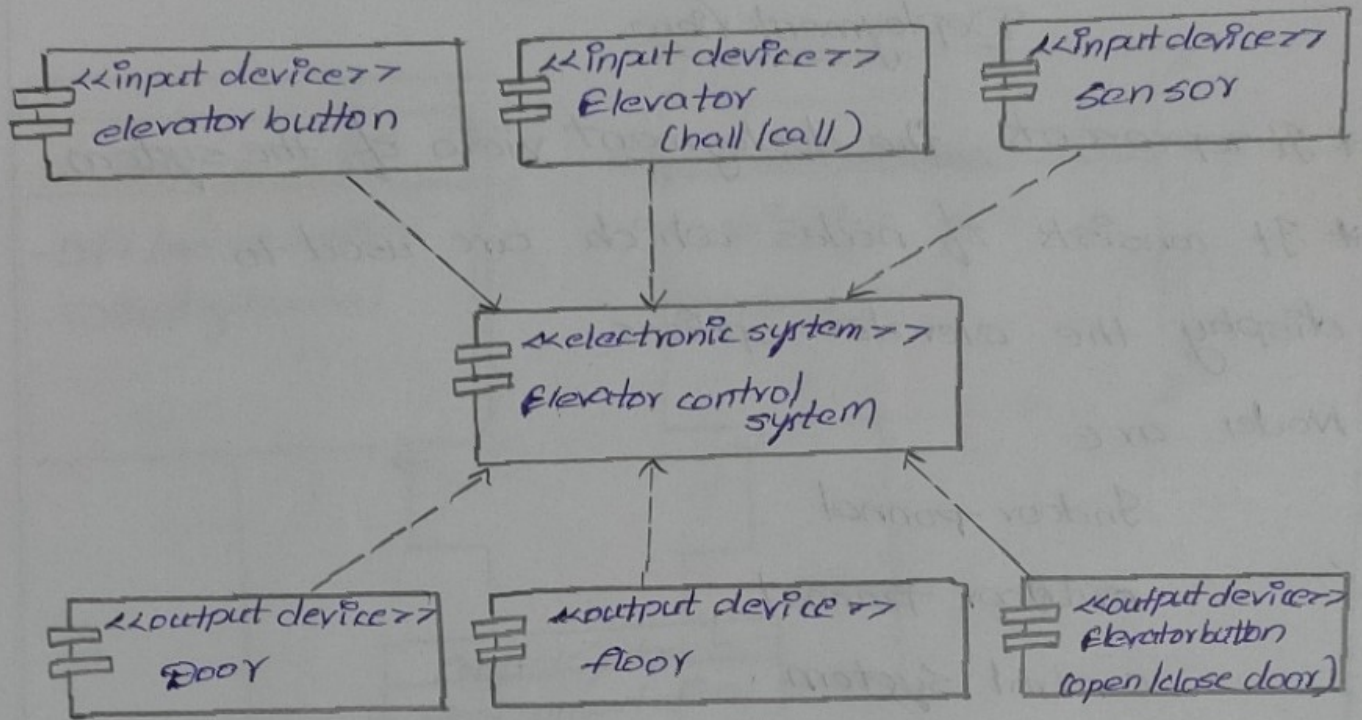 <<input device>>
elevator button
<<input device>>
Elevator
(hall/call)
<<input device>>
sensor
<<electronic system>>
Elevator control
system
<<output device>>
Door
<<output device>>
floor
<<output device>>
Elevator button
(open/close door)